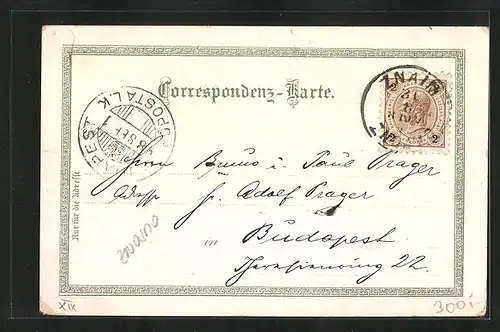 Correspondenz-Karte.
ZNAIM
Herrn Bruno i. Paul Prager
Adresse Hr. Adolf Prager
in Budapest
Theresienring 22.
Nur für die Adresse
XIX
300